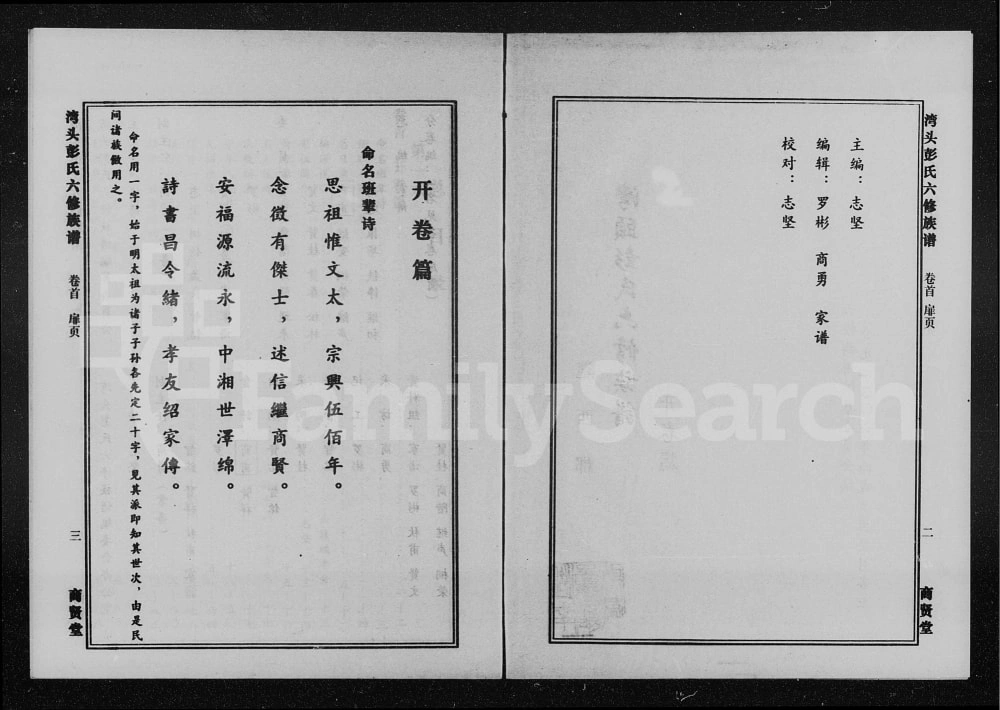 湾头彭氏六修族谱 卷首 扉页 二 商贤堂
主编：志坚
编辑：罗彬 商勇 家谱
校对：志坚
开卷篇
命名班辈诗
思祖惟文太，宗興伍佰年。
念徵有傑士，述信繼商賢。
安福源流永，中湘世澤绵。
詩書昌令緒，孝友绍家傳。
命名用一字，始于明太祖为诸子子孙各先定二十字，见其派即知其世次，由是民
间诸族傲用之。
湾头彭氏六修族谱 卷首 扉页 三 商贤堂
FamilySearch